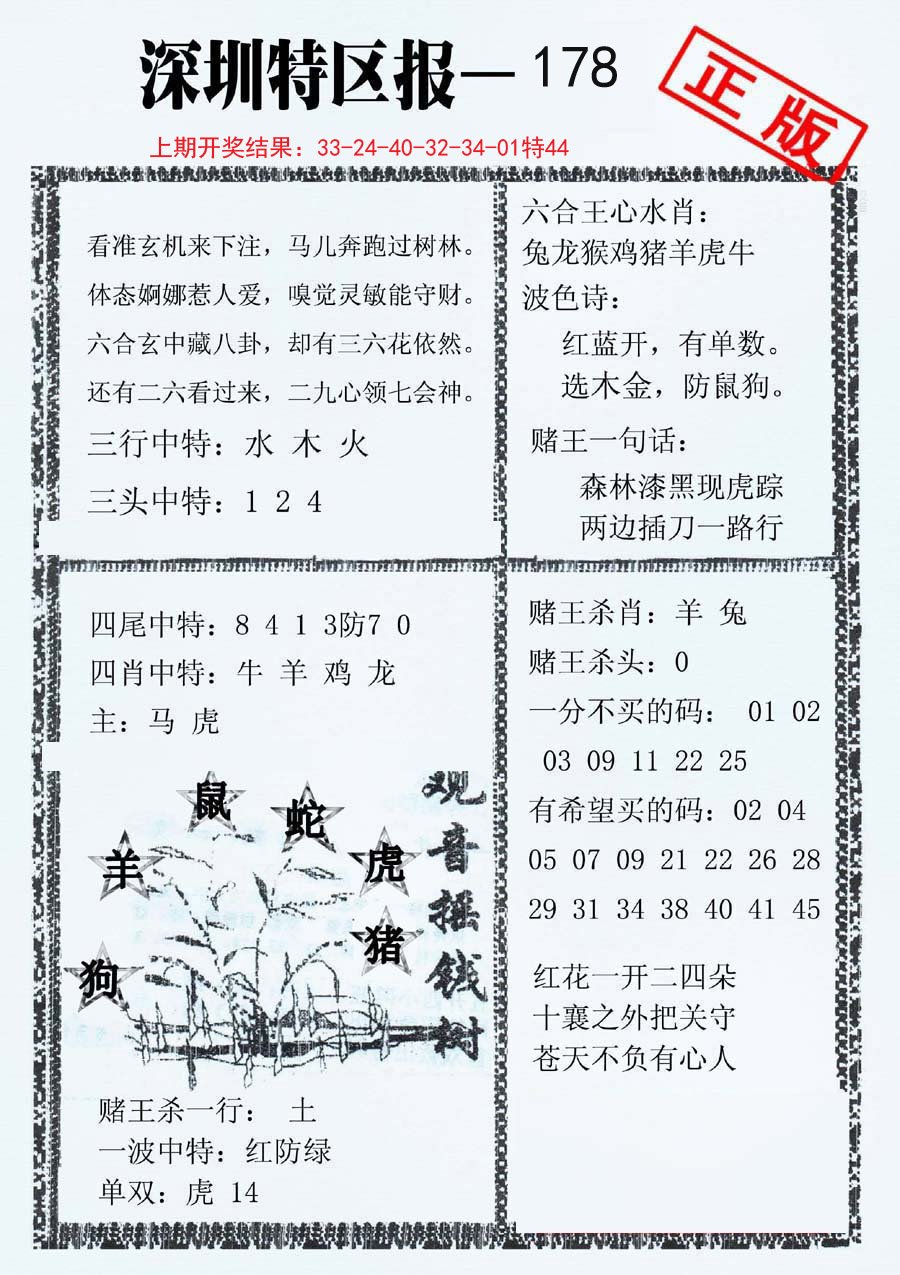 深圳特区报—178
正版
上期开奖结果：33-24-40-32-34-01特44
看准玄机来下注，马儿奔跑过树林。
体态婀娜惹人爱，嗅觉灵敏能守财。
六合玄中藏八卦，却有三六花依然。
还有二六看过来，二九心领七会神。
三行中特：水 木 火
三头中特：1 2 4
六合王心水肖：
兔龙猴鸡猪羊虎牛
波色诗：
红蓝开，有单数。
选木金，防鼠狗。
赌王一句话：
森林漆黑现虎踪
两边插刀一路行
四尾中特：8 4 1 3防7 0
四肖中特：牛 羊 鸡 龙
主：马 虎
鼠
蛇
羊
虎
猪
狗
观音摇钱树
赌王杀一行： 土
一波中特：红防绿
单双：虎 14
赌王杀肖：羊 兔
赌王杀头：0
一分不买的码： 01 02
03 09 11 22 25
有希望买的码：02 04
05 07 09 21 22 26 28
29 31 34 38 40 41 45
红花一开二四朵
十襄之外把关守
苍天不负有心人